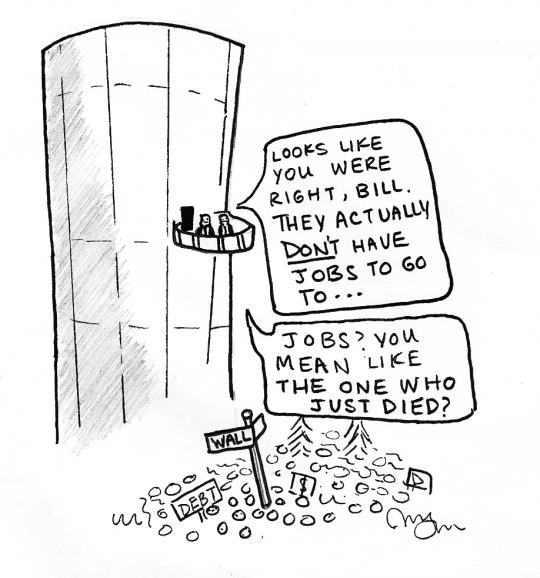 LOOKS LIKE
YOU WERE
RIGHT, BILL.
THEY ACTUALLY
DON'T HAVE
JOBS TO GO
TO...
JOBS? YOU
MEAN LIKE
THE ONE WHO
JUST DIED?
WALL
DEBT
$